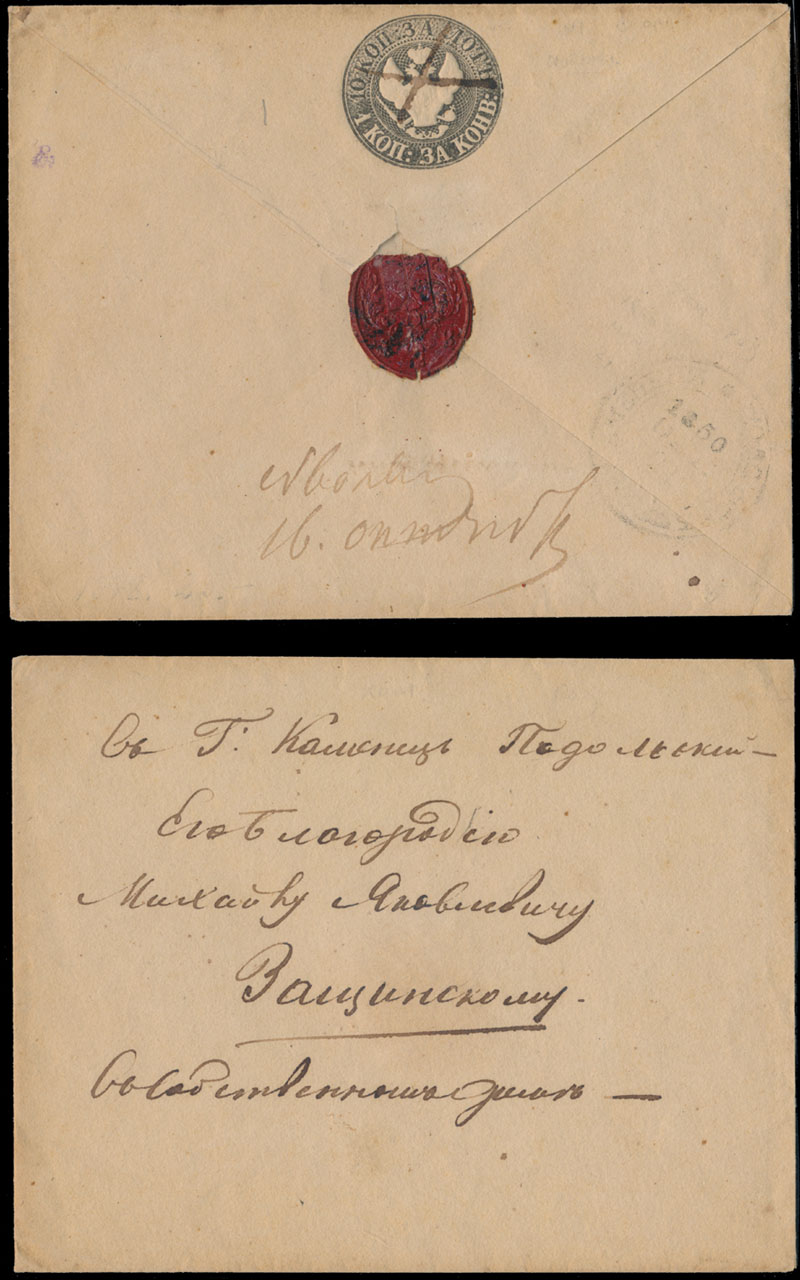 10 КОП: ЗА ЛОТЪ
1 КОП: ЗА КОНВ:
1850
Въ Г: Каменецъ Подольскій—
Его Благородію
Михайлу Яковлевичу
Ващинскому.
Въ Собственномъ домѣ —